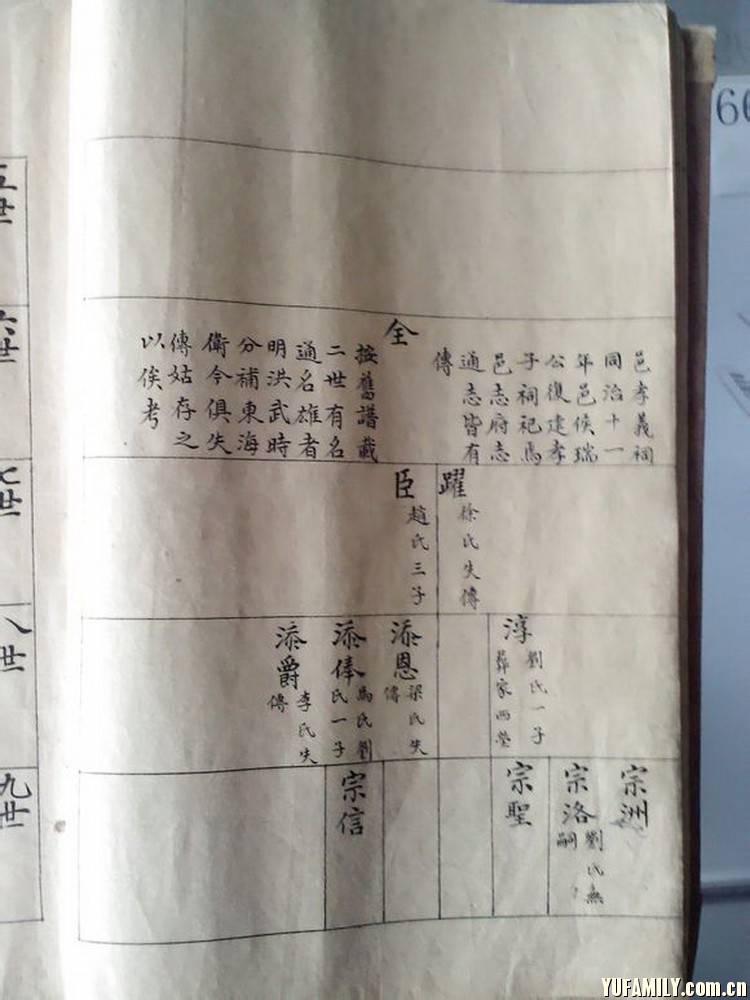 60
邑孝義祠
同治十一
年邑侯瑞
公復建孝
子祠祀焉
邑志府志
通志皆有
傳
全
按舊譜載
二世有名
通名雄者
明洪武時
分補東海
衛今俱失
傳姑存之
以俟考
躍
徐氏失傳
臣
趙氏三子
淳
劉氏一子
葬家西塋
添恩
梁氏失
傳
添俸
馬氏劉
氏一子
添爵
李氏失
傳
宗洲
宗洛
劉氏無
嗣
宗聖
宗信
五世
六世
七世
八世
九世
YUFAMILY.com.cn